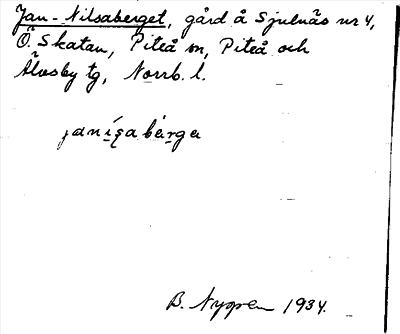 Jan-Nilsaberget, gård å Sjulnäs nr 4,
Ö. Skatan, Piteå sn, Piteå och
Älvsby tg, Norrb. l.
B. Nygren 1934.